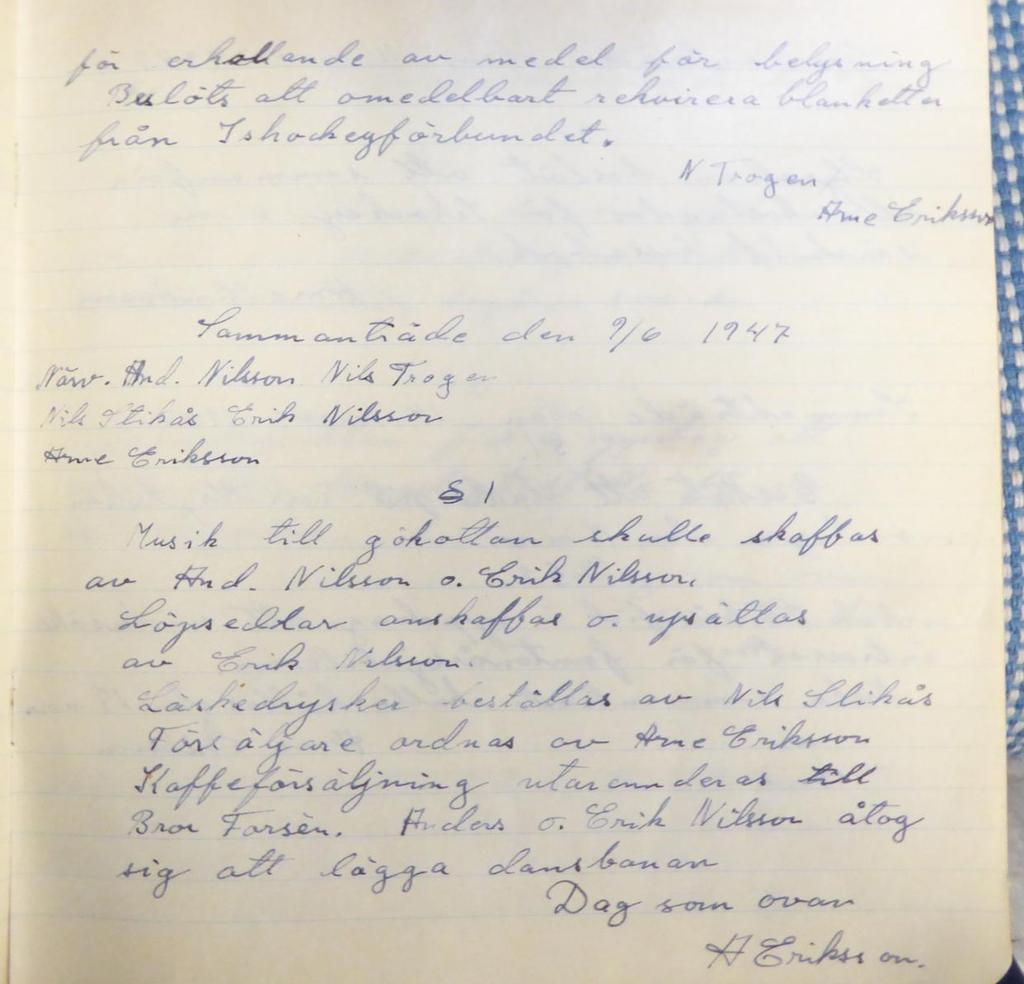 för erhallande av medel för belysning
Beslöts att omedelbart rekvirera blanketter
från Ishockeyförbundet.
N Trogen
Arne Eriksson
Sammanträde den 9/6 1947
Närv. And. Nilsson Nils Trogen
Nils Stikås Erik Nilsson
Arne Eriksson
§ 1
Musik till gökottan skulle skaffas
av And. Nilsson o. Erik Nilsson.
Löpsedlar anskaffas o. upsättas
av Erik Nilsson.
Läskedrycker beställas av Nils Stikås
Försäljare ordnas av Arne Eriksson
Kaffeförsäljning utarenderas till
Bror Forsèn. Anders o. Erik Nilsson åtog
sig att lägga dansbanan
Dag som ovan
A Eriksson.